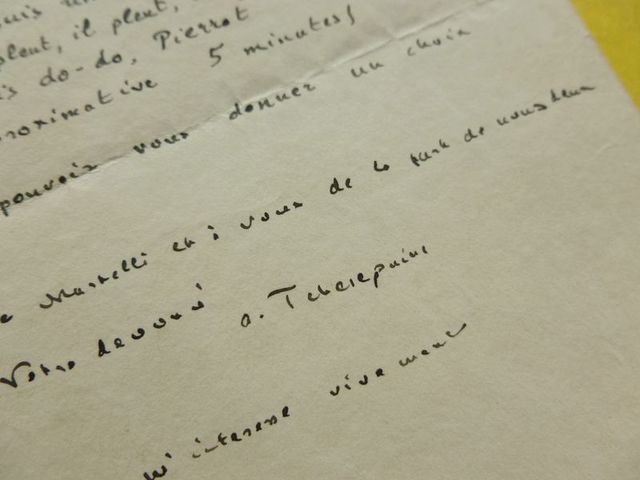 pleut, il pleut,
do-do, Pierrot
5 minutes)
pouvoir vous donner un choix
Martelli et à vous de la part de nous deux
Votre dévoué
a. Tcherepnine
m'interesse vivement